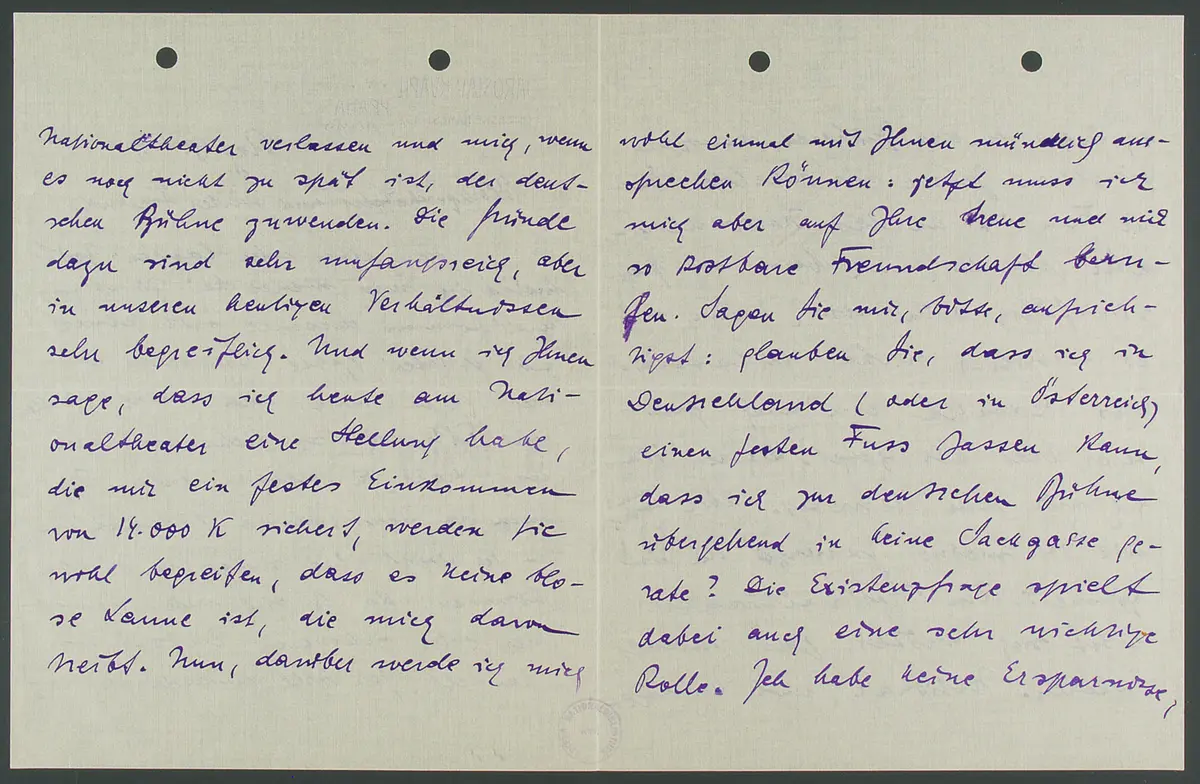 Nationaltheater verlassen und mich, wenn
es noch nicht zu spät ist, der deut-
schen Bühne zuwenden. Die Gründe
dazu sind sehr umfangreich, aber
in unseren heutigen Verhältnissen
sehr begreiflich. Und wenn ich Ihnen
sage, dass ich heute am Nati-
onaltheater eine Stellung habe,
die mir ein festes Einkommen
von 14.000 K sichert, werden Sie
wohl begreifen, dass es keine blo-
se Laune ist, die mich davon
treibt. Nun, darüber werde ich mich
wohl einmal mit Ihnen mündlich aus-
sprechen können: jetzt muss ich
mich aber auf Ihre treue und mir
so kostbare Freundschaft beru-
fen. Sagen Sie mir, bitte, aufrich-
tigst: glauben Sie, dass ich in
Deutschland (oder in Österreich)
einen festen Fuss fassen kann,
dass ich zur deutschen Bühne
übergehend in keine Sackgasse ge-
rate? Die Existenzfrage spielt
dabei auch eine sehr wichtige
Rolle. Ich habe keine Ersparnisse,